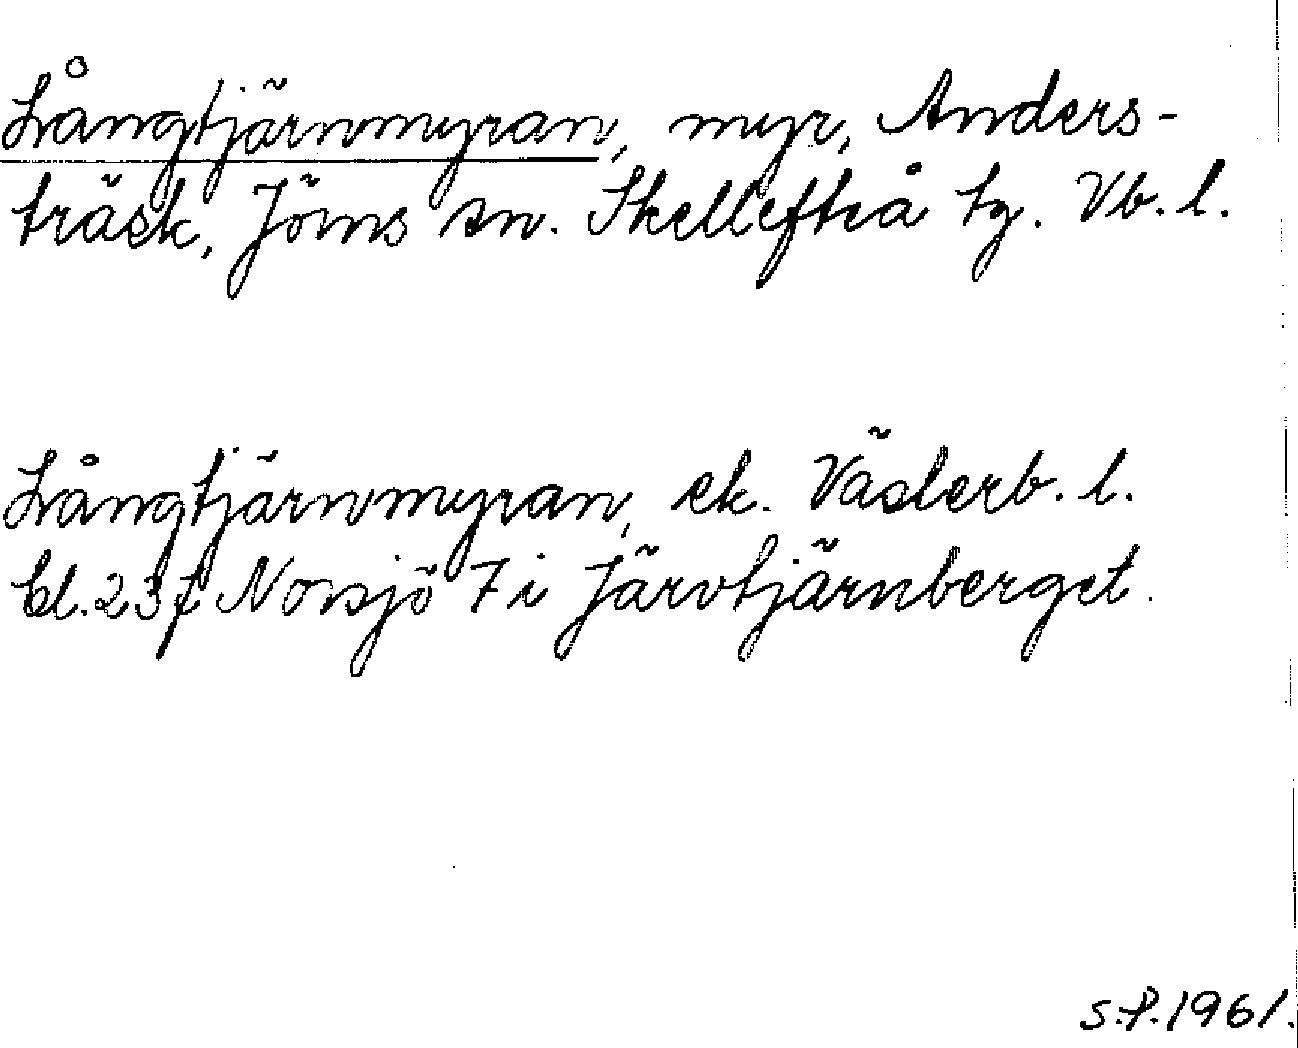 Långtjärnmyran, myr, Anders-
träsk, Jörns sn. Skellefteå tg. Vb. l.
Långtjärnmyran, ek. Västerb. l.
bl. 23 f Norsjö 7 i Järvtjärnberget.
S.P. 1961.